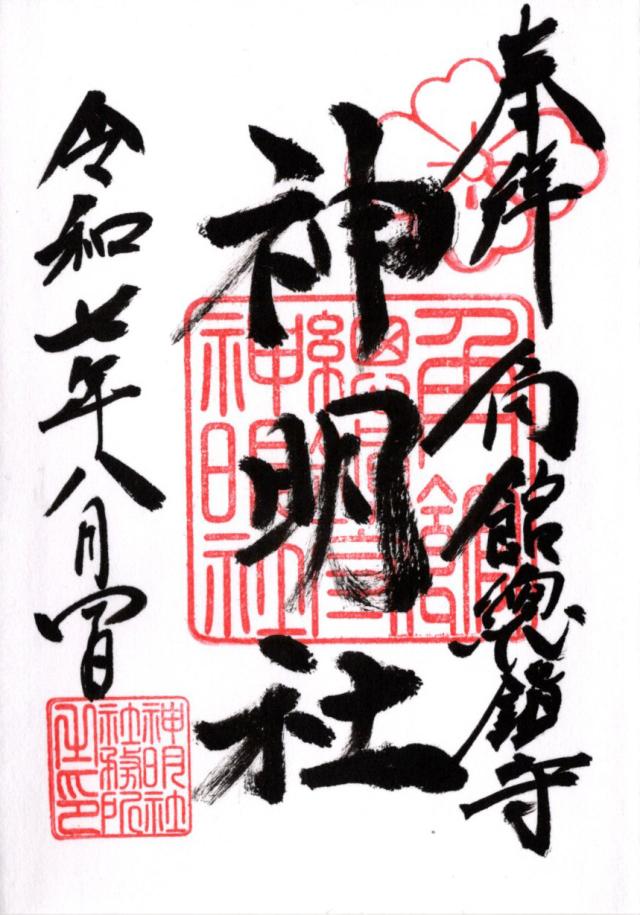 奉拝
角館總鎮守
神明社
令和七年八月四日
角館
總鎮守
神明社
神明社
社務所
之印